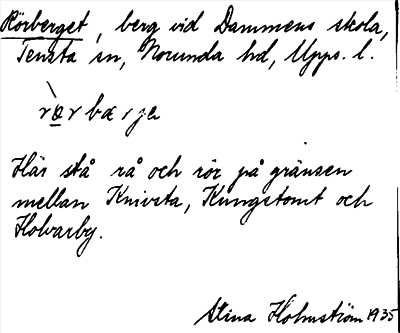 Rörberget, berg vid Dammens skola,
Tensta sn, Norunda hd, Upps. l.
Här stå rå och rör på gränsen
mellan Knivsta, Kungstomt och
Holvarby.
Stina Holmström 1935